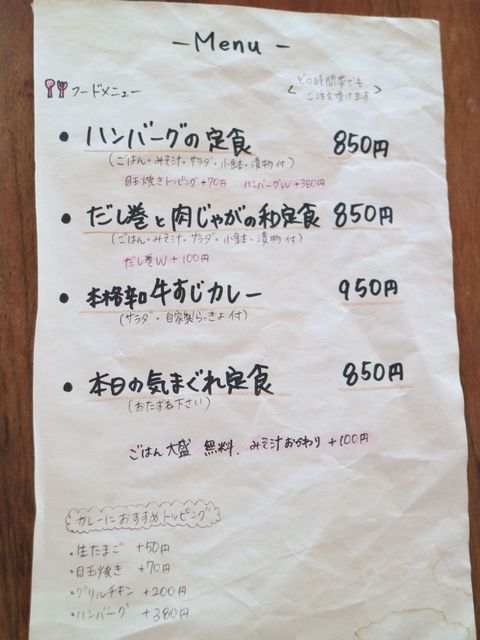 - Menu -
フードメニュー
どの時間帯でも
ご注文頂けます
• ハンバーグの定食 850円
(ごはん・みそ汁・サラダ・小鉢・漬物付)
目玉焼きトッピング+70円 ハンバーグW+380円
• だし巻と肉じゃがの和定食 850円
(ごはん・みそ汁・サラダ・小鉢・漬物付)
だし巻W+100円
• 本格辛口牛すじカレー 950円
(サラダ・自家製らっきょ付)
• 本日の気まぐれ定食 850円
(おたずね下さい)
ごはん大盛 無料、みそ汁おかわり+100円
カレーにおすすめトッピング
・生たまご +50円
・目玉焼き +70円
・グリルチキン +200円
・ハンバーグ +380円